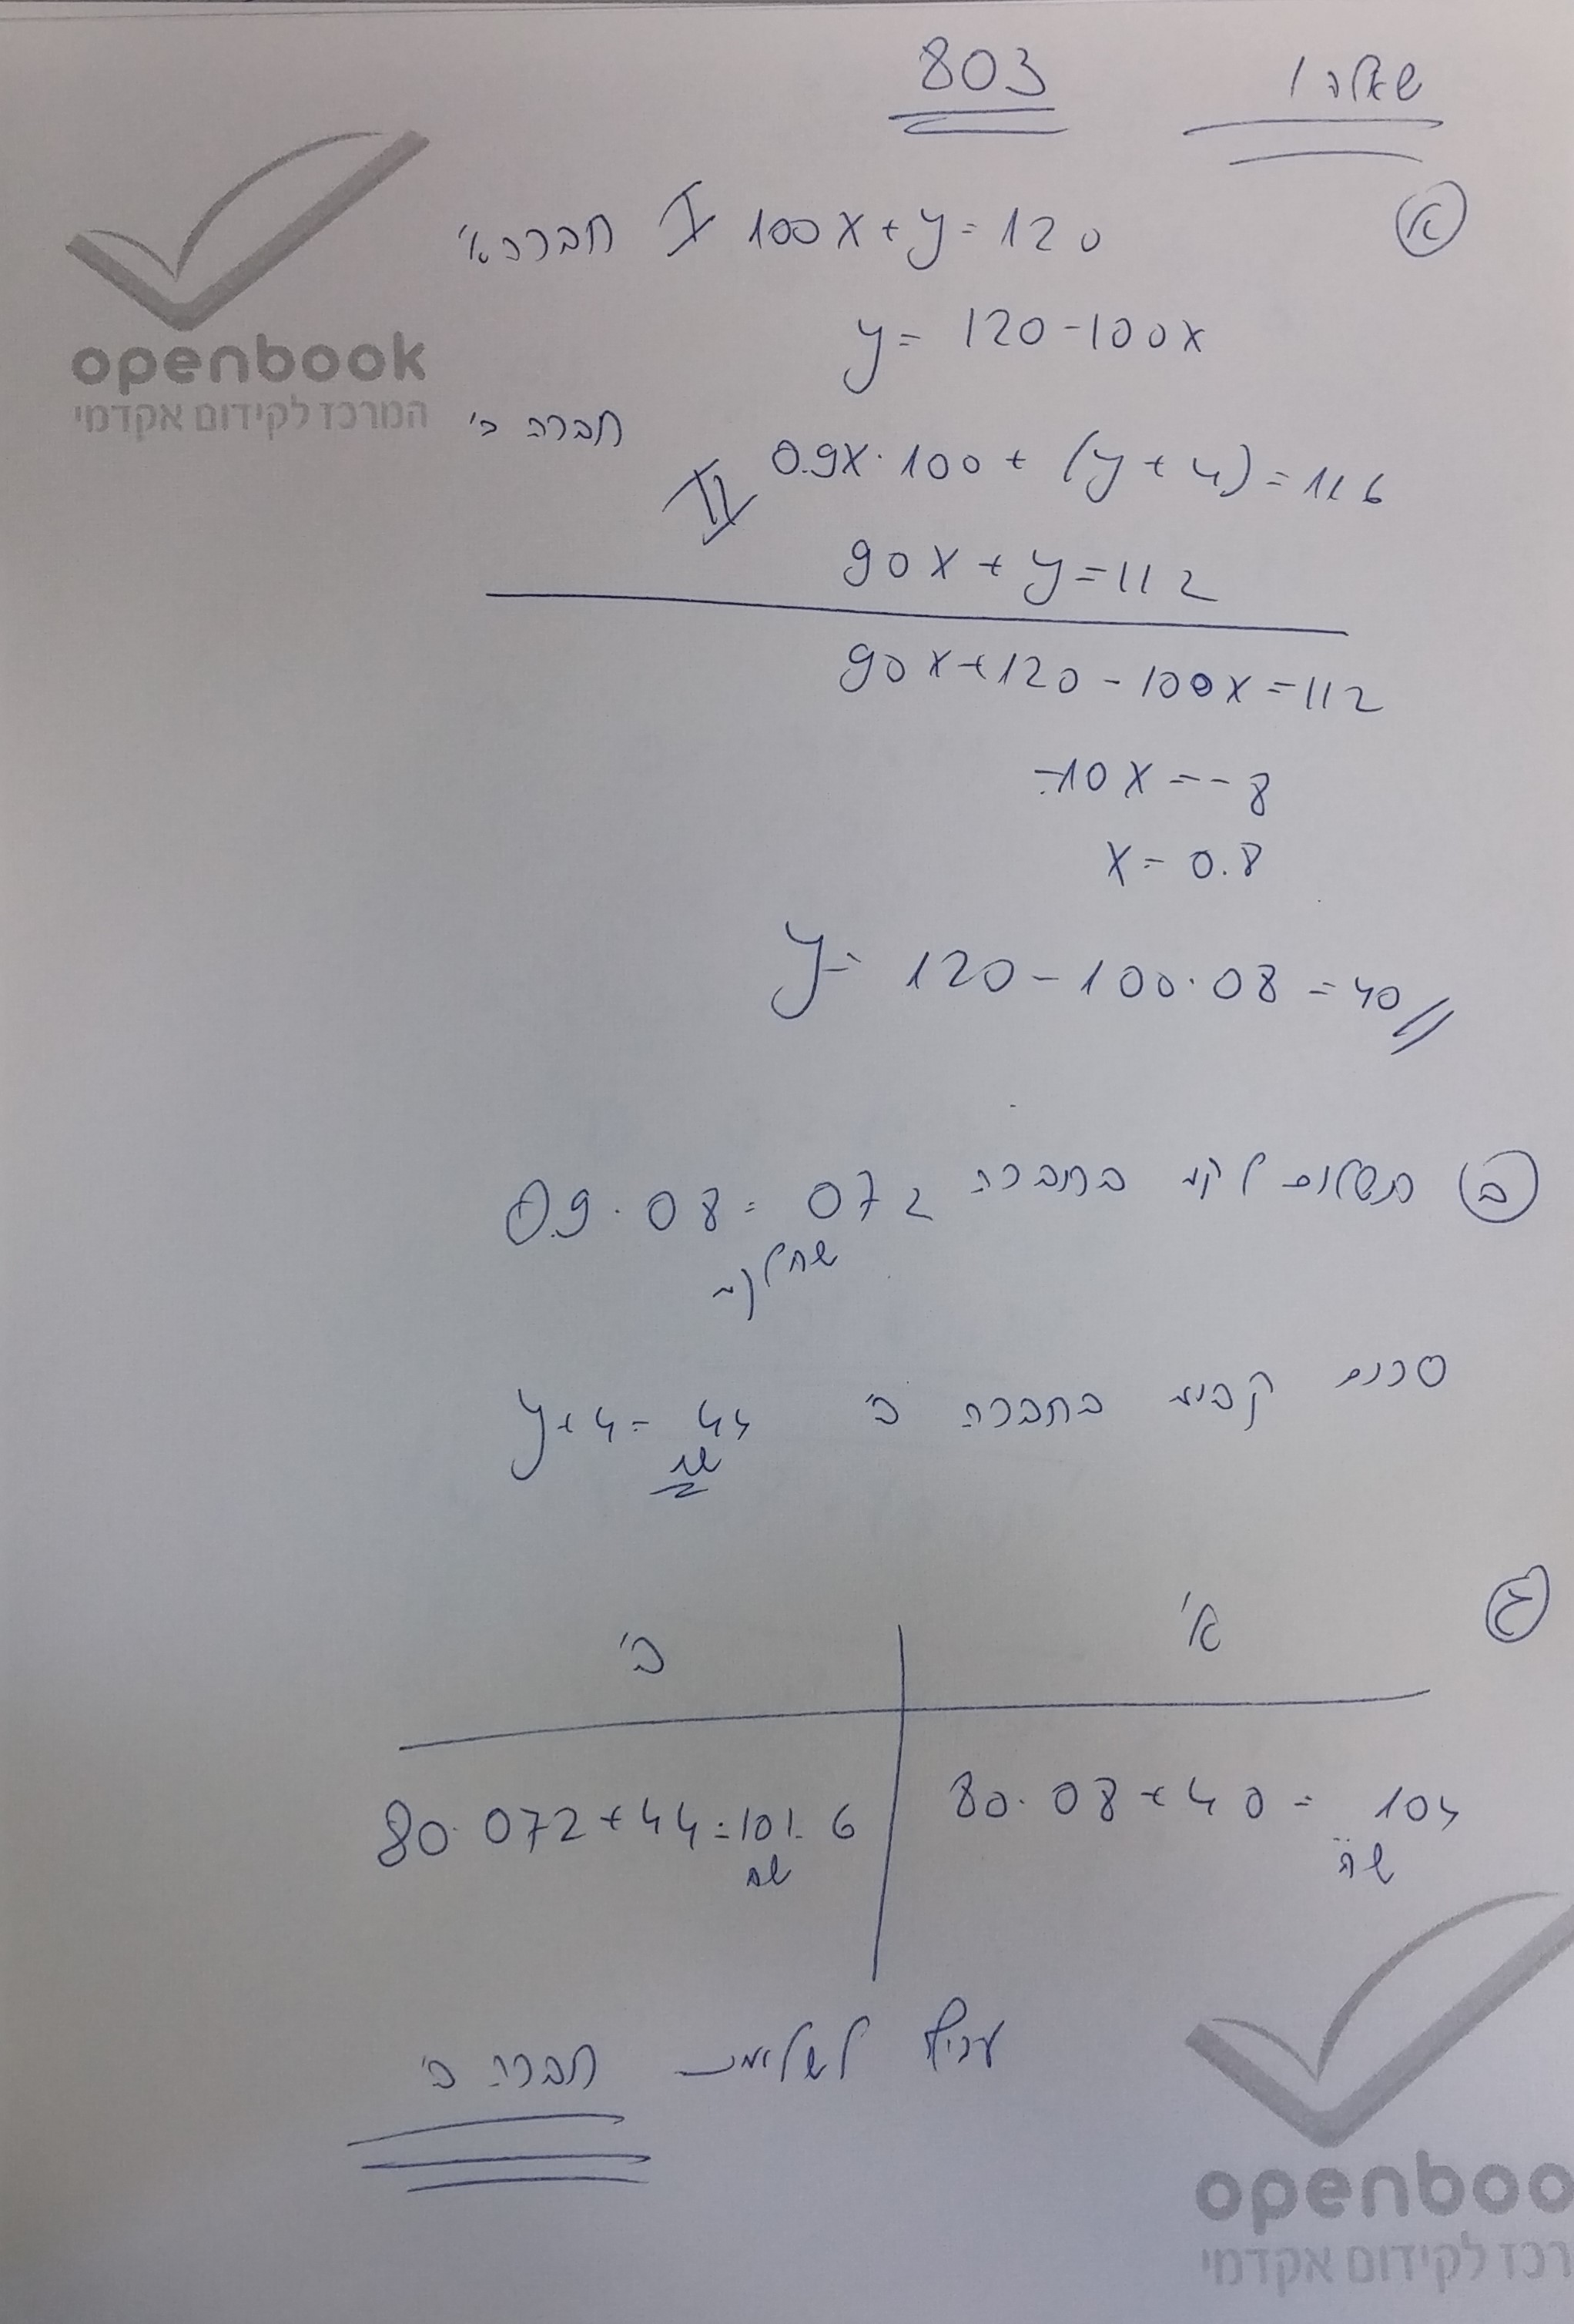 שאלה 1 803
א
חברה א' I 100x+y=120
y= 120-100x
חברה ב'
II 0.9x·100+(y+4)=116
90x+y=112
90x+120-100x=112
-10x=-8
x=0.8
y= 120-100·08=40
ב תשלום לקמ בחברה 0.9·08=072
שח לקמ
סכום קבוע בחברה ב' y+4=44
שח
ג
א' ב'
80·08+40=104 80·072+44=101.6
שח שח
עדיף לשלומית חברה ב'
openbook
המרכז לקידום אקדמי
openboo
רכז לקידום אקדמי